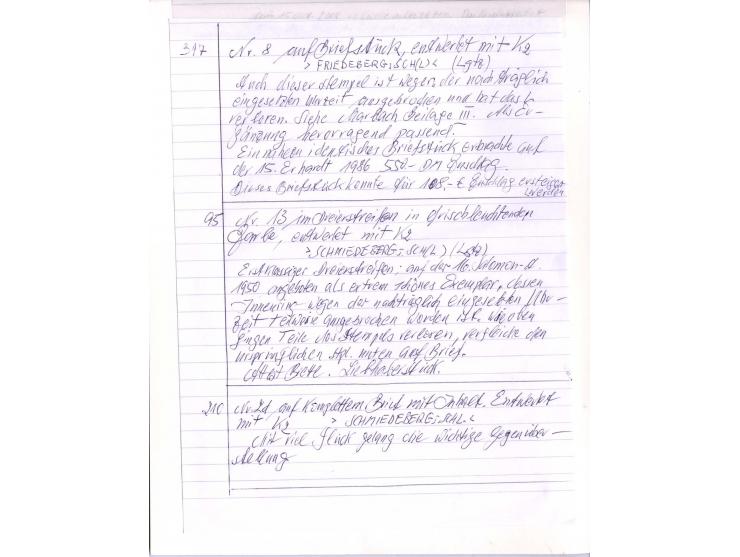 347 Nr. 8 auf Briefstück, entwertet mit K2
> FRIEDEBERG;SCH(L) < (Lgtz)
Auch dieser Stempel ist wegen der nachträglich
eingesetzten Uhrzeit ausgebrochen und hat das L
verloren. Siehe Beilage III. Als Er-
gänzung hervorragend passend.
Ein nahezu identisches Briefstück erbrachte auf
der 15. Erhardt 1986 550- DM Zuschlag.
Dieses Briefstück konnte für 108,- € Zuschlag ersteigert
werden
95 Nr. 13 im Dreierstreifen in frischleuchtender
Farbe, entwertet mit K2
> SCHMIEDEBERG; SCH(L) (Lgtz)
Erstklassiger Dreierstreifen; auf der 16.
1950 angeboten als extrem schönes Exemplar, dessen
Innenring wegen der nachträglich eingesetzten Uhr-
zeit teilweise ausgebrochen worden ist. wie oben
gingen Teile des Stempels verloren, vergleiche den
ursprünglichen Stpl. unten auf Brief.
Liebhaberstück.
210 auf komplettem Brief mit Inhalt. Entwertet
mit K2 > SCHMIEDEBERG; SCHL. <
Mit viel Glück gelang die wichtige Gegenüber-
stellung